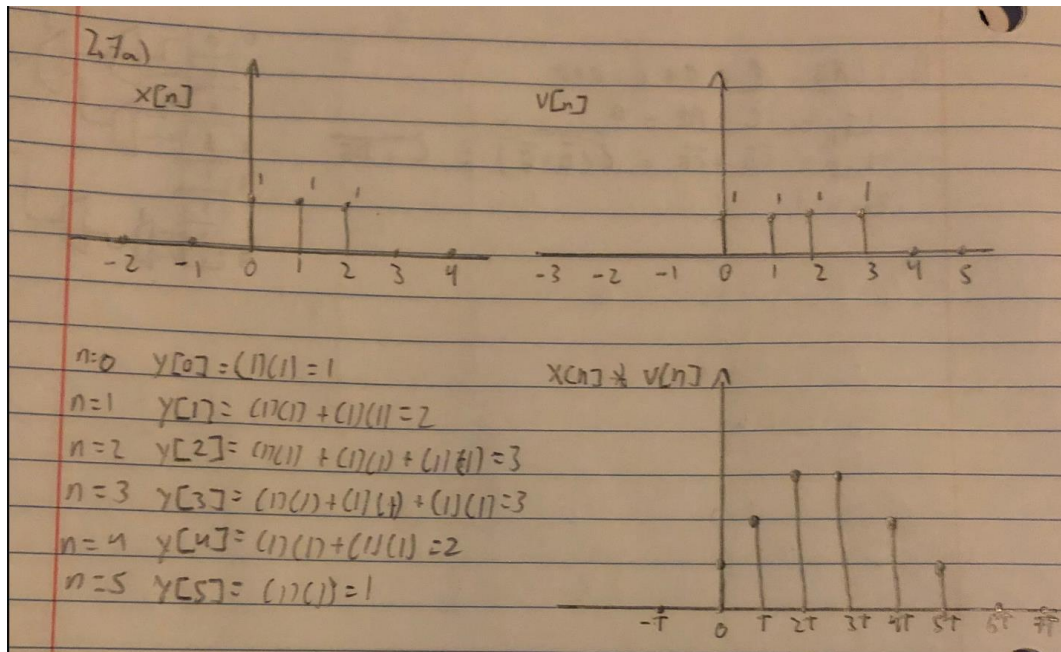 2.7a)
x[n]
v[n]
1 1 1
1 1 1 1
-2 -1 0 1 2 3 4
-3 -2 -1 0 1 2 3 4 5
n=0 y[0]=(1)(1)=1
x[n] * v[n]
n=1 y[1]=(1)(1)+(1)(1)=2
n=2 y[2]=(1)(1)+(1)(1)+(1)(1)=3
n=3 y[3]=(1)(1)+(1)(1)+(1)(1)=3
n=4 y[4]=(1)(1)+(1)(1)=2
n=5 y[5]=(1)(1)=1
-T 0 T 2T 3T 4T 5T 6T 7T